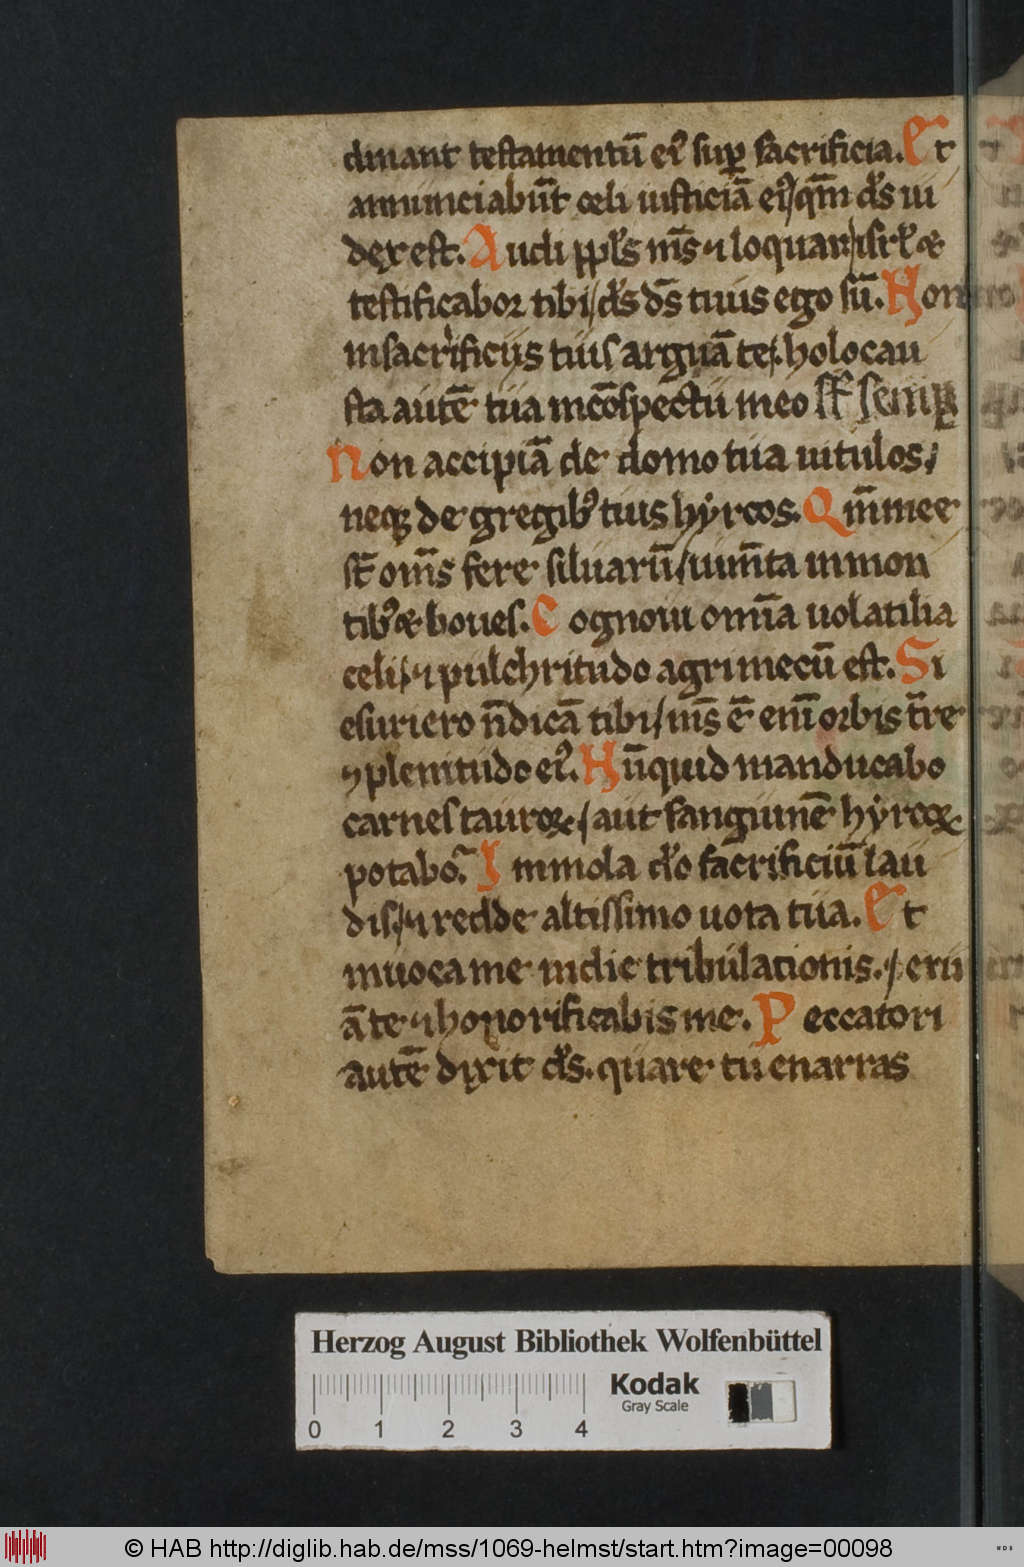 dinant testamentū ei⁹ sup̱ sacrificia. Et
annunciabūt celi iusticiā ei⁹ / qm̄ d's iu
dex est. Audi ppl's ms̄ ⁊ loquar / isrl' &
testificabor tibi / d's ds̄ tuus ego sū. Non
in sacrificiis tuis arguā te / holocau
sta autē tua in cōspectu meo st̄ semp̱
Non accipiā de domo tua uitulos /
neqꝫ de gregib⁹ tuis hyrcos. Qm̄ mee
st̄ om̄s fere siluarū / iumn̄ta in mon
tib⁹ & boues. Cognoui om̄ia uolatilia
celi / ⁊ pulchritudo agri mecū est. Si
esuriero n̄ dicā tibi / ms̄ ē eni̅ orbis tr̄re
⁊ plenitudo ei⁹. Nūquid manducabo
carnes tauroꝝ / aut sanguinē hyrcoꝝ
potabo. Immola d'o sacrificiū lau
dis / ⁊ redde altissimo uota tua. Et
inuoca me in die tribulationis. / eru
ā te ⁊ honorificabis me. Peccatori
autē dixit d's. quare tu enarras
Herzog August Bibliothek Wolfenbüttel
Kodak
Gray Scale
0 1 2 3 4
© HAB http://diglib.hab.de/mss/1069-helmst/start.htm?image=00098